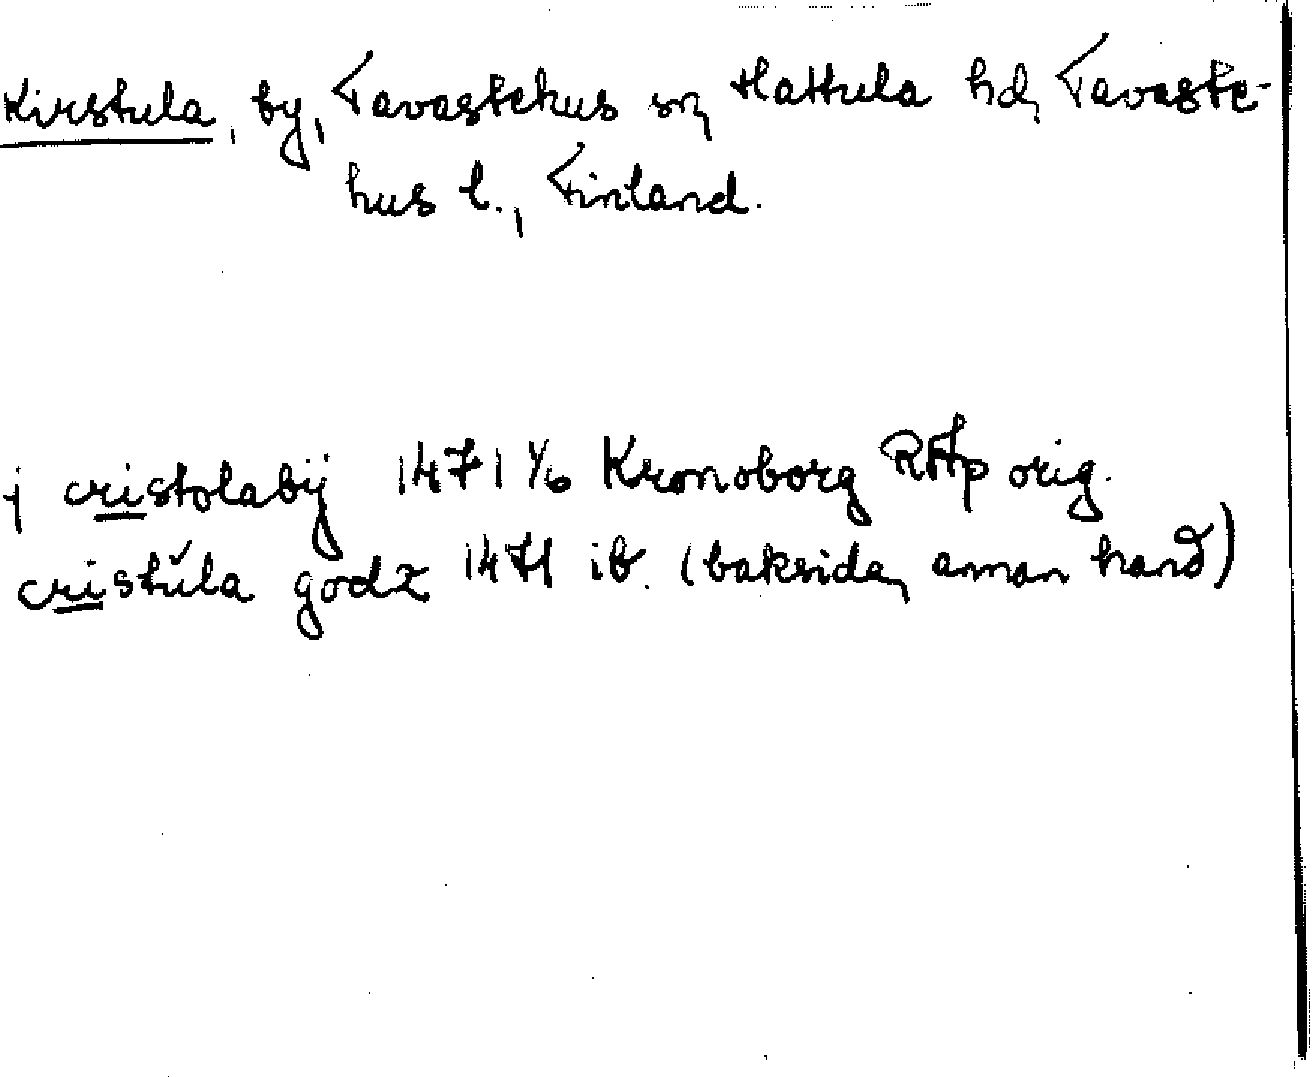 Kirstula, by, Tavastehus sn, Hattula hd, Tavaste-
hus l., Finland.
j cristolabij 1471 1/6 Kronoborg RAp orig.
cristŭla godz 1471 ib. (baksida, annan hand)